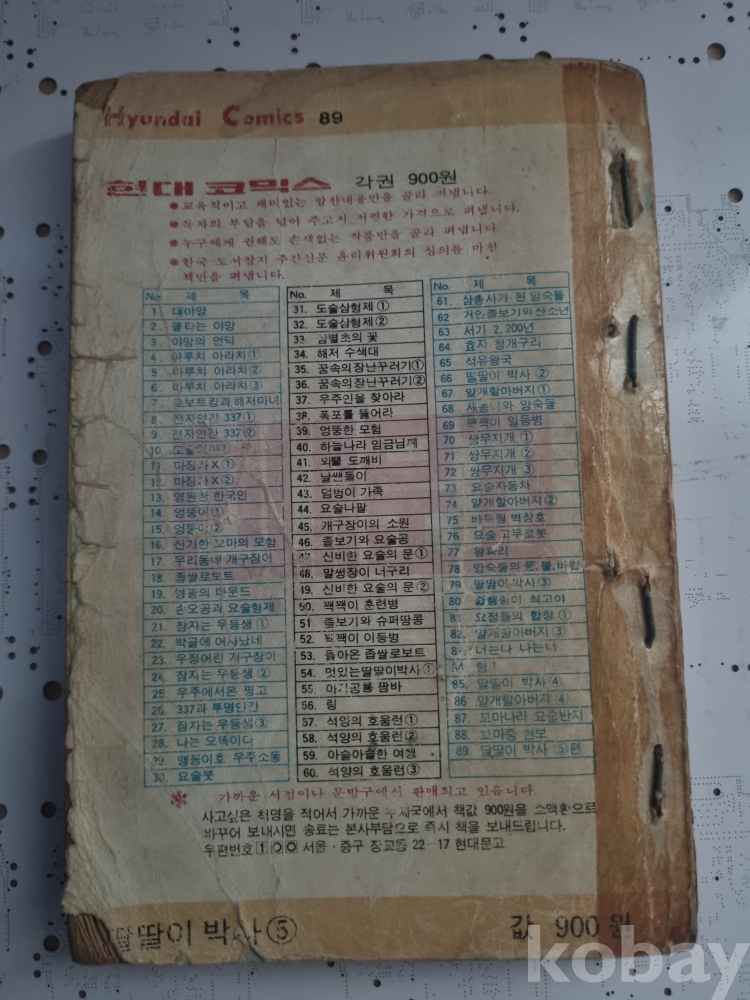 Hyundai Comics 89
현대 코믹스 각권 900원
●교육적이고 재미있는 알찬내용만을 골라 펴냅니다.
●독자의 부담을 덜어 주고자 저렴한 가격으로 펴냅니다.
●누구에게 권해도 손색없는 작품만을 골라 펴냅니다.
●한국 도서잡지 주간신문 윤리위원회의 심의를 마친
책만을 펴냅니다.
No 제 목
1 대야망
2 불타는 야망
3. 야망의 언덕
4. 마루치 아라치①
5. 마루치 아라치②
6. 마루치 아라치③
7. 로보트킹과 해저마녀
8. 전자인간 337①
9. 전자인간 337②
10.
11. 마징가X①
12. 마징가X②
13. 영원한 한국인
14. 엉뚱이①
15. 엉뚱이②
16. 신기한 꼬마의 모험
17. 우리동네 개구장이
18. 좁쌀로보트
19. 영광의 마운드
20. 손오공과 요술형제
21. 잠자는 우등생①
22. 박글에 어사났네
23. 우정어린 개구장이
24. 잠자는 우등생②
25. 우주에서온 핑고
26. 337과 투명인간
27. 잠자는 우등생③
28. 나는 오뚝이다
29. 맹꽁이호 우주소동
30. 요술붓
No. 제 목
31. 도술삼형제①
32. 도술삼형제②
33. 삼별초의 꽃
34. 해저 수색대
35. 꿈속의장난꾸러기①
36. 꿈속의장난꾸러기②
37. 우주인을 찾아라
38. 폭포를 뚫어라
39. 엉뚱한 모험
40. 하늘나라 임금님께
41. 외뿔 도깨비
42. 날쌘돌이
43. 덤벙이 가족
44. 요술나팔
45. 개구장이의 소원
46. 졸보기와 요술공
47. 신비한 요술의 문①
48. 말썽장이 너구리
49. 신비한 요술의 문②
50. 꽥꽥이 훈련병
51. 졸보기와 슈퍼땅콩
52. 꽥꽥이 이등병
53. 돌아온 좁쌀로보트
54. 멋있는딸딸이박사①
55. 아기공룡 짬바
56. 링
57. 석양의 호움런①
58. 석양의 호움런②
59. 아슬아슬한 여행
60. 석양의 호움런③
No. 제 목
61. 삼총사가 된 앙숙들
62 거인졸보기와산소년
63 서기 2,200년
64 효자 청개구리
65 석유왕국
66 딸딸이 박사②
67 얄개할아버지①
68 앙숙들
69 꽥꽥이 일등병
70 쌍무지개①
71 쌍무지개②
72 쌍무지개③
73 요술자동차
74 얄개할아버지②
75 바둑월 벽창호
76 요술고무로봇
77 왕파리
78 앙숙들의 물,불,바람
79 딸딸이박사③
80 최고야
81 요정들의 합창①
82. 얄개할아버지③
83 너는나 나는너
84 험!
85. 딸딸이 박사④
86 얄개할아버지④
87. 꼬마나라 요술반지
88. 꼬마중 현보
89. 딸딸이 박사⑤편
※ 가까운 서점이나 문방구에서 판매되고 있읍니다.
사고싶은 책명을 적어서 가까운 우체국에서 책값 900원을 소액환으로
바꾸어 보내시면 송료는 본사부담으로 즉시 책을 보내드립니다.
우편번호 100 서울·중구 장교동 22-17 현대문고
딸딸이 박사⑤ 값 900원
kobay